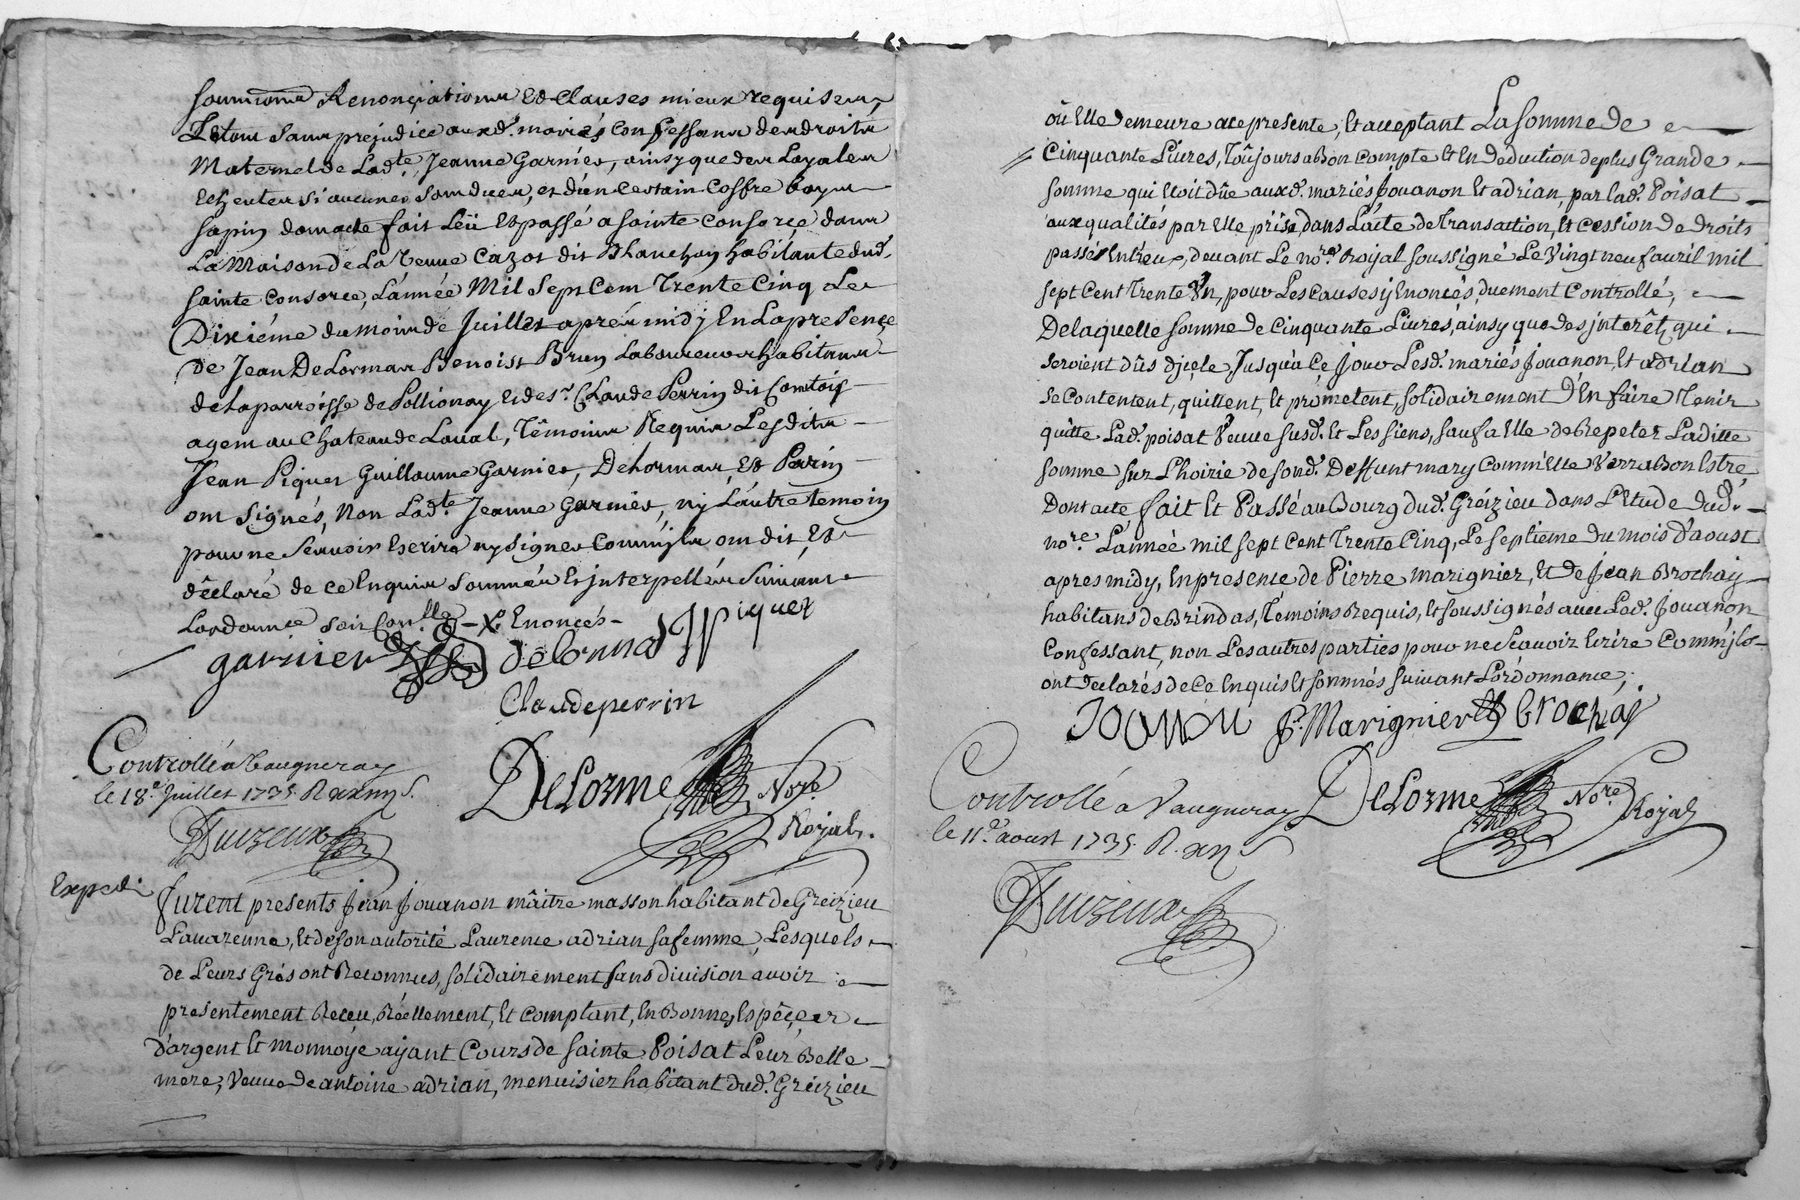 soumissions Renonçiations Et Clauses mieux requises,
Letout Sans prejudice auxd. mariés Confessans des droits
Maternel de Lad.te Jeanne Garnier, ainsy que des Loyales
Echeutes si aucunes Sont dues, et d'un Certain Coffre boys
sapin dont acte fait Leü Et passé a sainte Consorce dans
La Maison de La Veuve Cazot dit Blanchon habitante dud.
sainte Consorce, L'année Mil Sept Cent Trente Cinq Le
Dixiéme du mois de Juillet aprés midy En La presençe
de Jean Delormas Benoist Brun Laboureurs habitans
de la parroisse de Pollionay Et de s.r Claude Perrin dit Comtois
agent au Chateau de Laval, Témoins Requis Lesdits
Jean Piquet Guillaume Garnier, Delormas, Et Perrin
ont Signés, Non Lad.te Jeanne Garnier, ny L'autre temoin
pour ne Sçavoir Escrire ny Signer Comm'ils ont dit, Et
déclaré de ce Enquis Sommés Et jnterpellés Suivant
Lordonnçe soit Con.llé X. Enonçés
garnier delorma J Piquet
Claude perrin
Controllé a Vaugneray
le 18.e Juillet 1735. R
DeLorme Nore.
Royal.
Expedi
furent presents Jean Jouanon mâitre masson habitant de Gréizieu
Lavarenne, Et de son autorité Laurence adrian sa femme, Lesquels
de Leurs Grés ont Reconnus, solidairement sans division avoir
presentement Reçeu, Réellement, Et Comptant, En Bonnes Espéçes
D'argent Et Monnoye ayant Cours de sainte Poisat Leur Belle
mere, Veuve de antoine adrian, menuisier habitant dud. Gréizieu
oû Elle demeure ace presente, Et acceptant La somme de
Cinquante Livres, Toûjours a Bon Compte Et En Deduction de plus Grande
somme qui Etoit dûe auxd. mariés Jouanon Et adrian, par Lad. Poisat
aux qualités par Elle prise dans L'acte de Transaction, Et Cession De droits
passé Entreux, devant Le nore. Royal soussigné Le Vingt neuf avril mil
sept Cent Trente Un, pour Les Causes y Enoncés, duement Controllé,
De laquelle somme de Cinquante Livres, ainsy que des jnterêtz qui
seroient dûs d'jcele, Jusqu'a Ce Jour Lesd. mariés Jouanon, Et adrian
se Contentent, quittent, Et prométent, solidairement D'En faire Tenir
quitte Lad. poisat Veuve susd. Et Les siens, sauf a Elle de Repeter Laditte
somme sur L'hoirie de fond. Deffunt mary Comm'Elle Verra Bon Estre
Dont acte fait Et Passé au Bourg dud. Gréizieu dans L'Etude dud.
nore. L'année mil sept Cent Trente Cinq, Le septieme du mois D'aoust
apres midy, En presence de Pierre Marignier, Et de Jean Brochay
habitans de Brindas, Temoins Requis, Et soussignés avec Led. Jouanon
Confessant, non Les autres parties pour ne sçavoir Ecrire Comm'jls
ont declarés de ce Enquis Et sommés suivant L'ordonnance,
JOUANON P. Marignier Brochay
Controllé a Vaugneray
le 11.e aoust 1735. R.
DeLorme Nore.
Royal